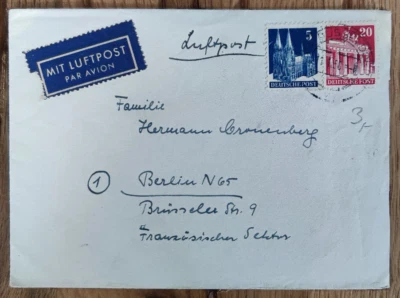 MIT LUFTPOST
PAR AVION
Luftpost
5
DEUTSCHE POST
20
DEUTSCHE POST
3,-
Familie
Hermann Cronenberg
1
Berlin N65
Brüsseler Str. 9
Französischer Sektor